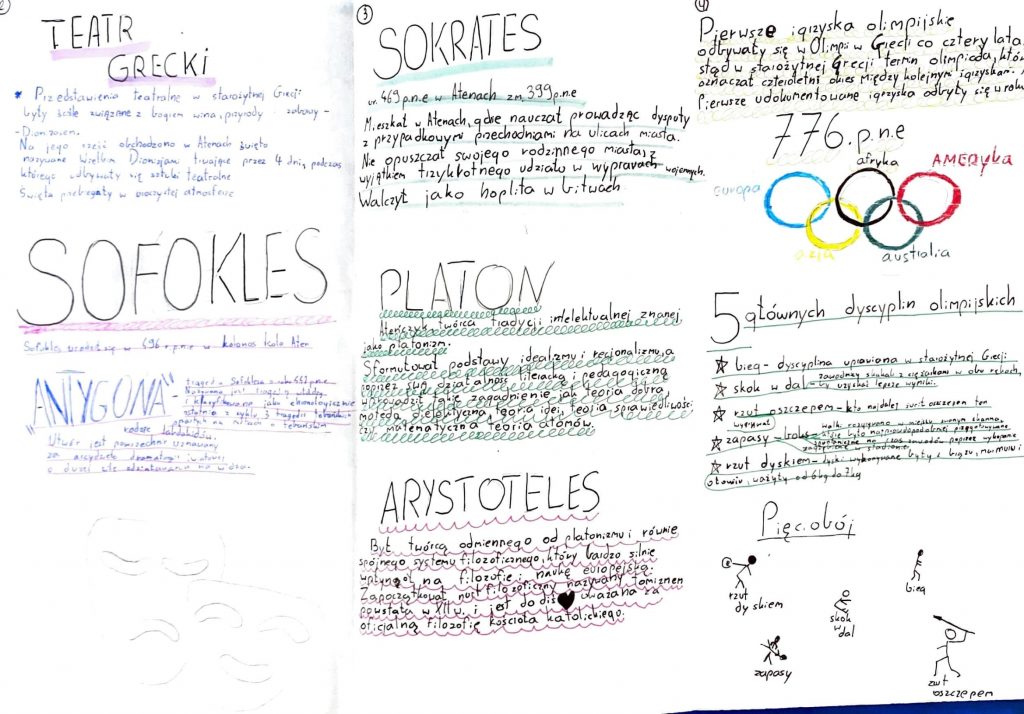 2
TEATR
GRECKI
* Przedstawienia teatralne w starożytnej Grecji
były ściśle związane z bogiem wina, przyrody i zabawy -
- Dionzosem.
Na jego cześć obchodzono w Atenach święto
nazywane Wielkim Dionizjami trwające przez 4 dni, podczas
którego odbywały się sztuki teatralne
Święta przebiegały w uroczystej atmosferze
SOFOKLES
Sofokles urodził się w 496 r.p.n.e w kolonos koło Aten
"ANTYGONA"
tragedia Sofoklesa z roku 442 p.n.e
ostatnia z cyklu 3 tragedii
opartych na mitach o tebańskim
rodzie Labdakidów.
Utwór jest powszechnie uznawany
za arcydzieło dramaturgii światowej
o dużej sile oddziaływania na widza.
3
SOKRATES
ur. 469 p.n.e w Atenach zm. 399 p.n.e
Mieszkał w Atenach, gdzie nauczał prowadząc dysputy
z przypadkowymi przechodniami na ulicach miasta.
Nie opuszczał swojego rodzinnego miasta, z
wyjątkiem trzykrotnego udziału w wyprawach wojennych.
Walczył jako hoplita w bitwach
PLATON
Ateńczyk twórca tradycji intelektualnej znanej
jako platonizm.
Sformułował podstawy idealizmu i racjonalizmu, a
poprzez swą działalność literacką i pedagogiczną
wprowadził takie zagadnienie jak teoria dobra,
metoda dielektyczna, teoria idei, teoria sprawiedliwości
czy matematyczna teoria atomów.
ARYSTOTELES
Był twórcą odmiennego od platonizmu i równie
spójnego systemu filozoficznego, który bardzo silnie
wpłynął na filozofię i naukę europejską.
Zapoczątkował nurt filozoficzny nazywany tomizmem
powstała w XIII w. i jest do dziś ukazana za
oficjalną filozofię kościoła katolickiego.
4
Pierwsze igrzyska olimpijskie
odbywały się w Olimpii w Grecji co cztery lata.
stąd w starożytnej Grecji termin olimpiada, któ
oznaczał czteroletni okres między kolejnymi igrzyskami.
Pierwsze udokumentowane igrzyska odbyły się w roku
776.p.n.e
afryka
AMERyka
europa
azja
australia
5 głównych dyscyplin olimpijskich
bieg - dyscyplina uprawiana w starożytnej Grecji
skok w dal - zawodnicy skakali z ciężarkami w obu rękach,
by uzyskać lepsze wyniki.
rzut oszczepem - kto najdalej rzucił oszczepem ten
wygrywał
zapasy -
rzut dyskiem - dyski wykonywane były z brązu, marmuru i
ołowiu, ważyły od 6 by do 7 kg
Pięciobój
rzut
dyskiem
skok
w
dal
bieg
zapasy
rzut
oszczepem